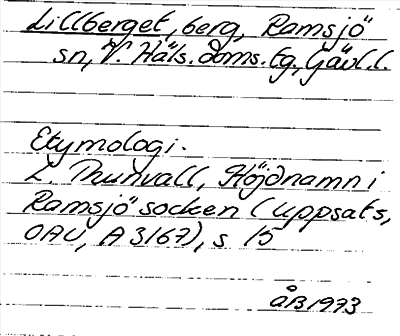 Lillberget, berg, Ramsjö
sn, V. Häls. doms. tg., Gävl. l.
Etymologi.
L. Thunvall, Höjdnamn i
Ramsjö socken (uppsats,
OAU, A 3167), s 15
ÅB 1973